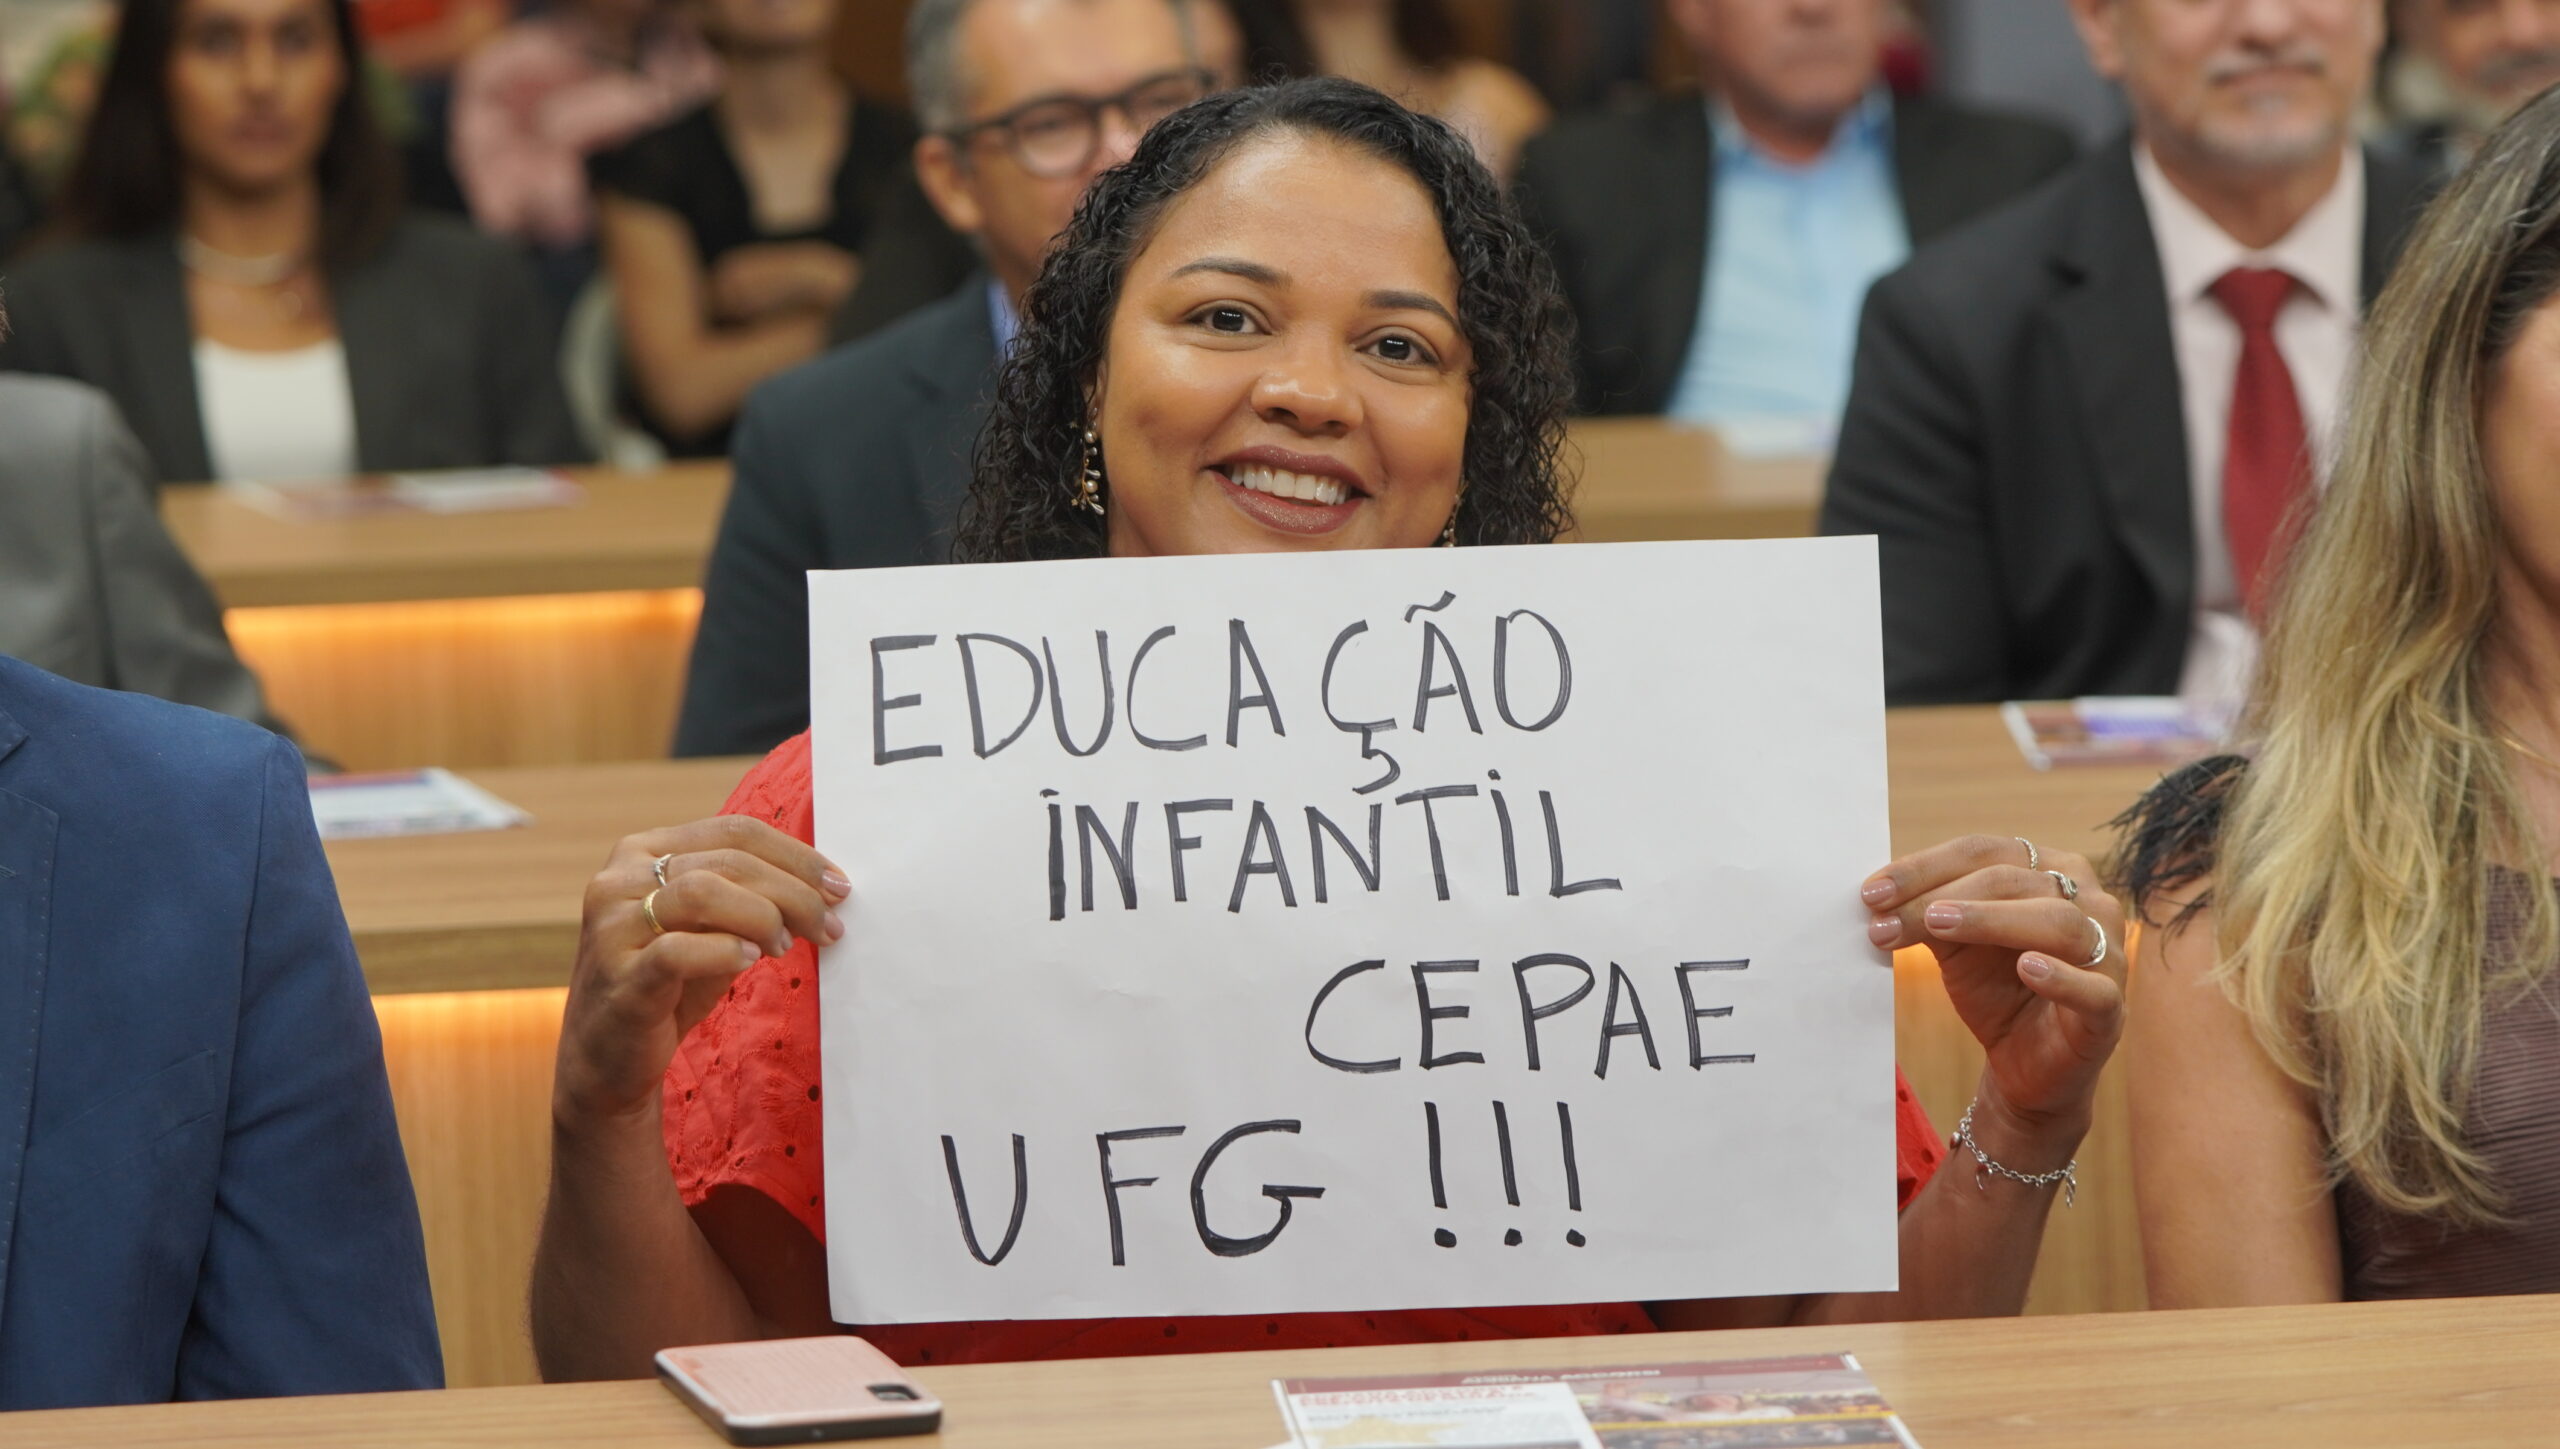 EDUCAÇÃO
INFANTIL
CEPAE
UFG !!!
ACCORSI